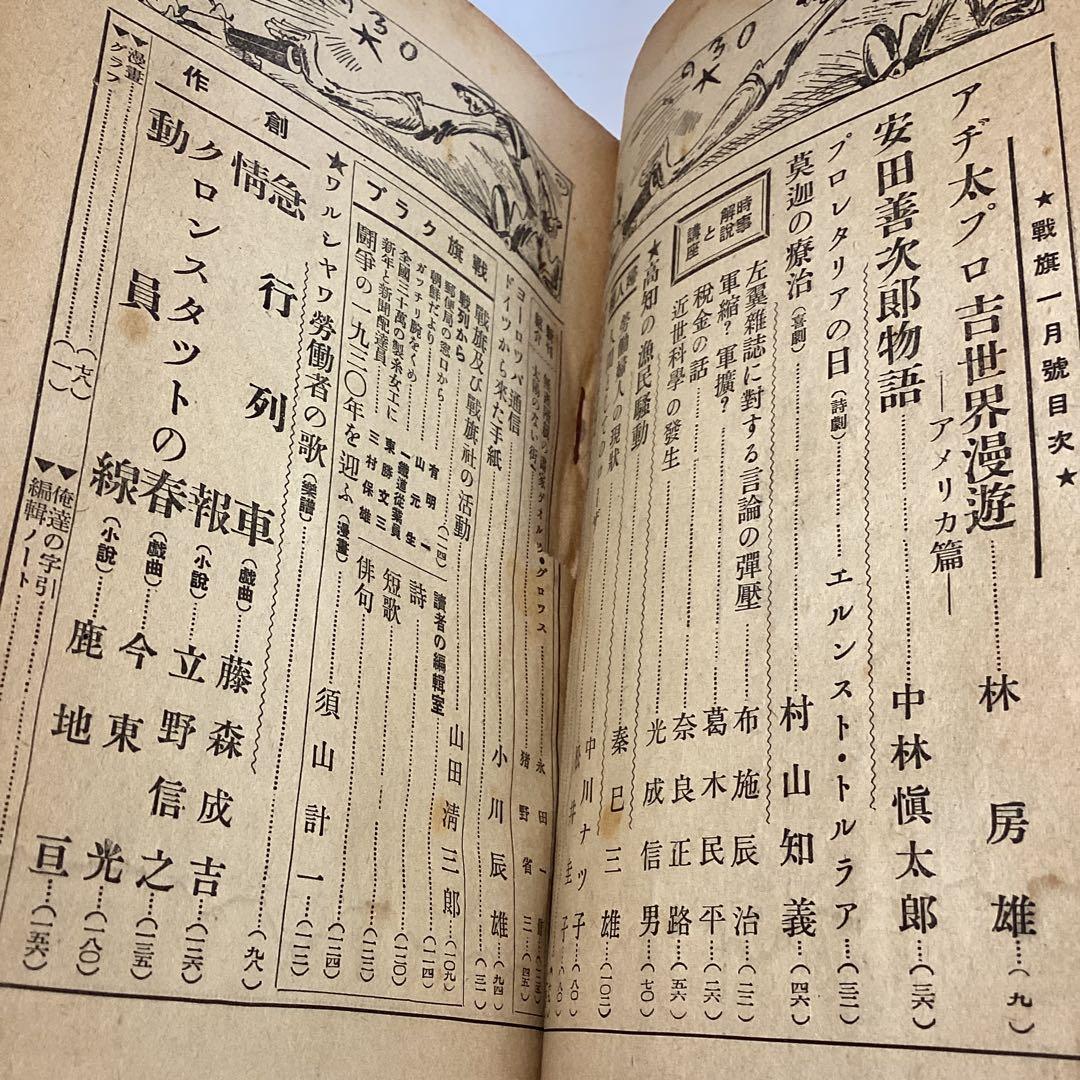 1930
★戰旗一月號目次★
アヂ太プロ吉世界漫遊
―アメリカ篇―……林房雄…(九)
安田善次郎物語……中林愼太郎…(三六)
プロレタリアの日(詩劇)……エルンスト・トルラア…(三二)
莫迦の療治(喜劇)……村山知義…(四六)
時事解説と講座
左翼雜誌に對する言論の彈壓……布施辰治…(二二)
軍縮?軍擴?……葛木民平…(二六)
税金の話……奈良正路…(五六)
近世科學の發生……光成信男…(七〇)
★高知の漁民騷動……秦巳三雄…(一〇二)
勞働婦人の現状……中川ナツ子…(八〇)
1930
ヨーロツパ通信
ドイツから來た手紙……小川辰雄…(九四)
戰旗クラブ
戰旗及び戰旗社の活動……山田淸三郎…(一〇九)
戰列から(一一四)
郵便局の窓口から……有明一
朝鮮だより……山元生
ガツチリ腕をくめ……一鐵道從業員
全國三十萬の製糸女工に……東勝文三
新年と新聞配達員……三村保雄
讀者の編輯室
詩……(一一四)
短歌……(一二〇)
俳句……(一二二)
鬪爭の一九三〇年を迎ふ(漫畫)……須山計一…(一二四)
★ワルシヤワ勞働者の歌(樂譜)……(一一二)
創作
急行列車(戲曲)……藤森成吉…(九八)
情報(小説)……立野信之…(一二六)
クロンスタットの春(戲曲)……今東光…(一三五)
動員線(小説)……鹿地亘…(一五六)
▼▼漫畫グラフ……(一七八)
▼▼俺達の字引
編輯ノート